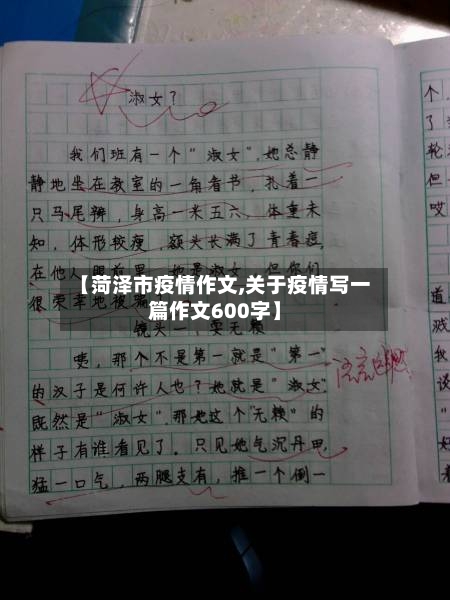 淑女?
我们班有一个"淑女".她总静
静地坐在教室的一角看书,扎着二
只马尾辫,身高一米五六.体重未
知,体形较瘦,额头长满了青春痘.
在他人
很荣幸地被
【菏泽市疫情作文,关于疫情写一
篇作文600字】
镜头一:耍无赖
咦,那个不是第一就是"第一"
的汉子是何许人也?她就是"淑女".
既然是"淑女".那她这个"无赖"的
样子有谁看见了。只见她气沉丹田.
猛一口气,两腿支有,推一个倒一
个.
了
轮
但
哎
道
戏
我
说